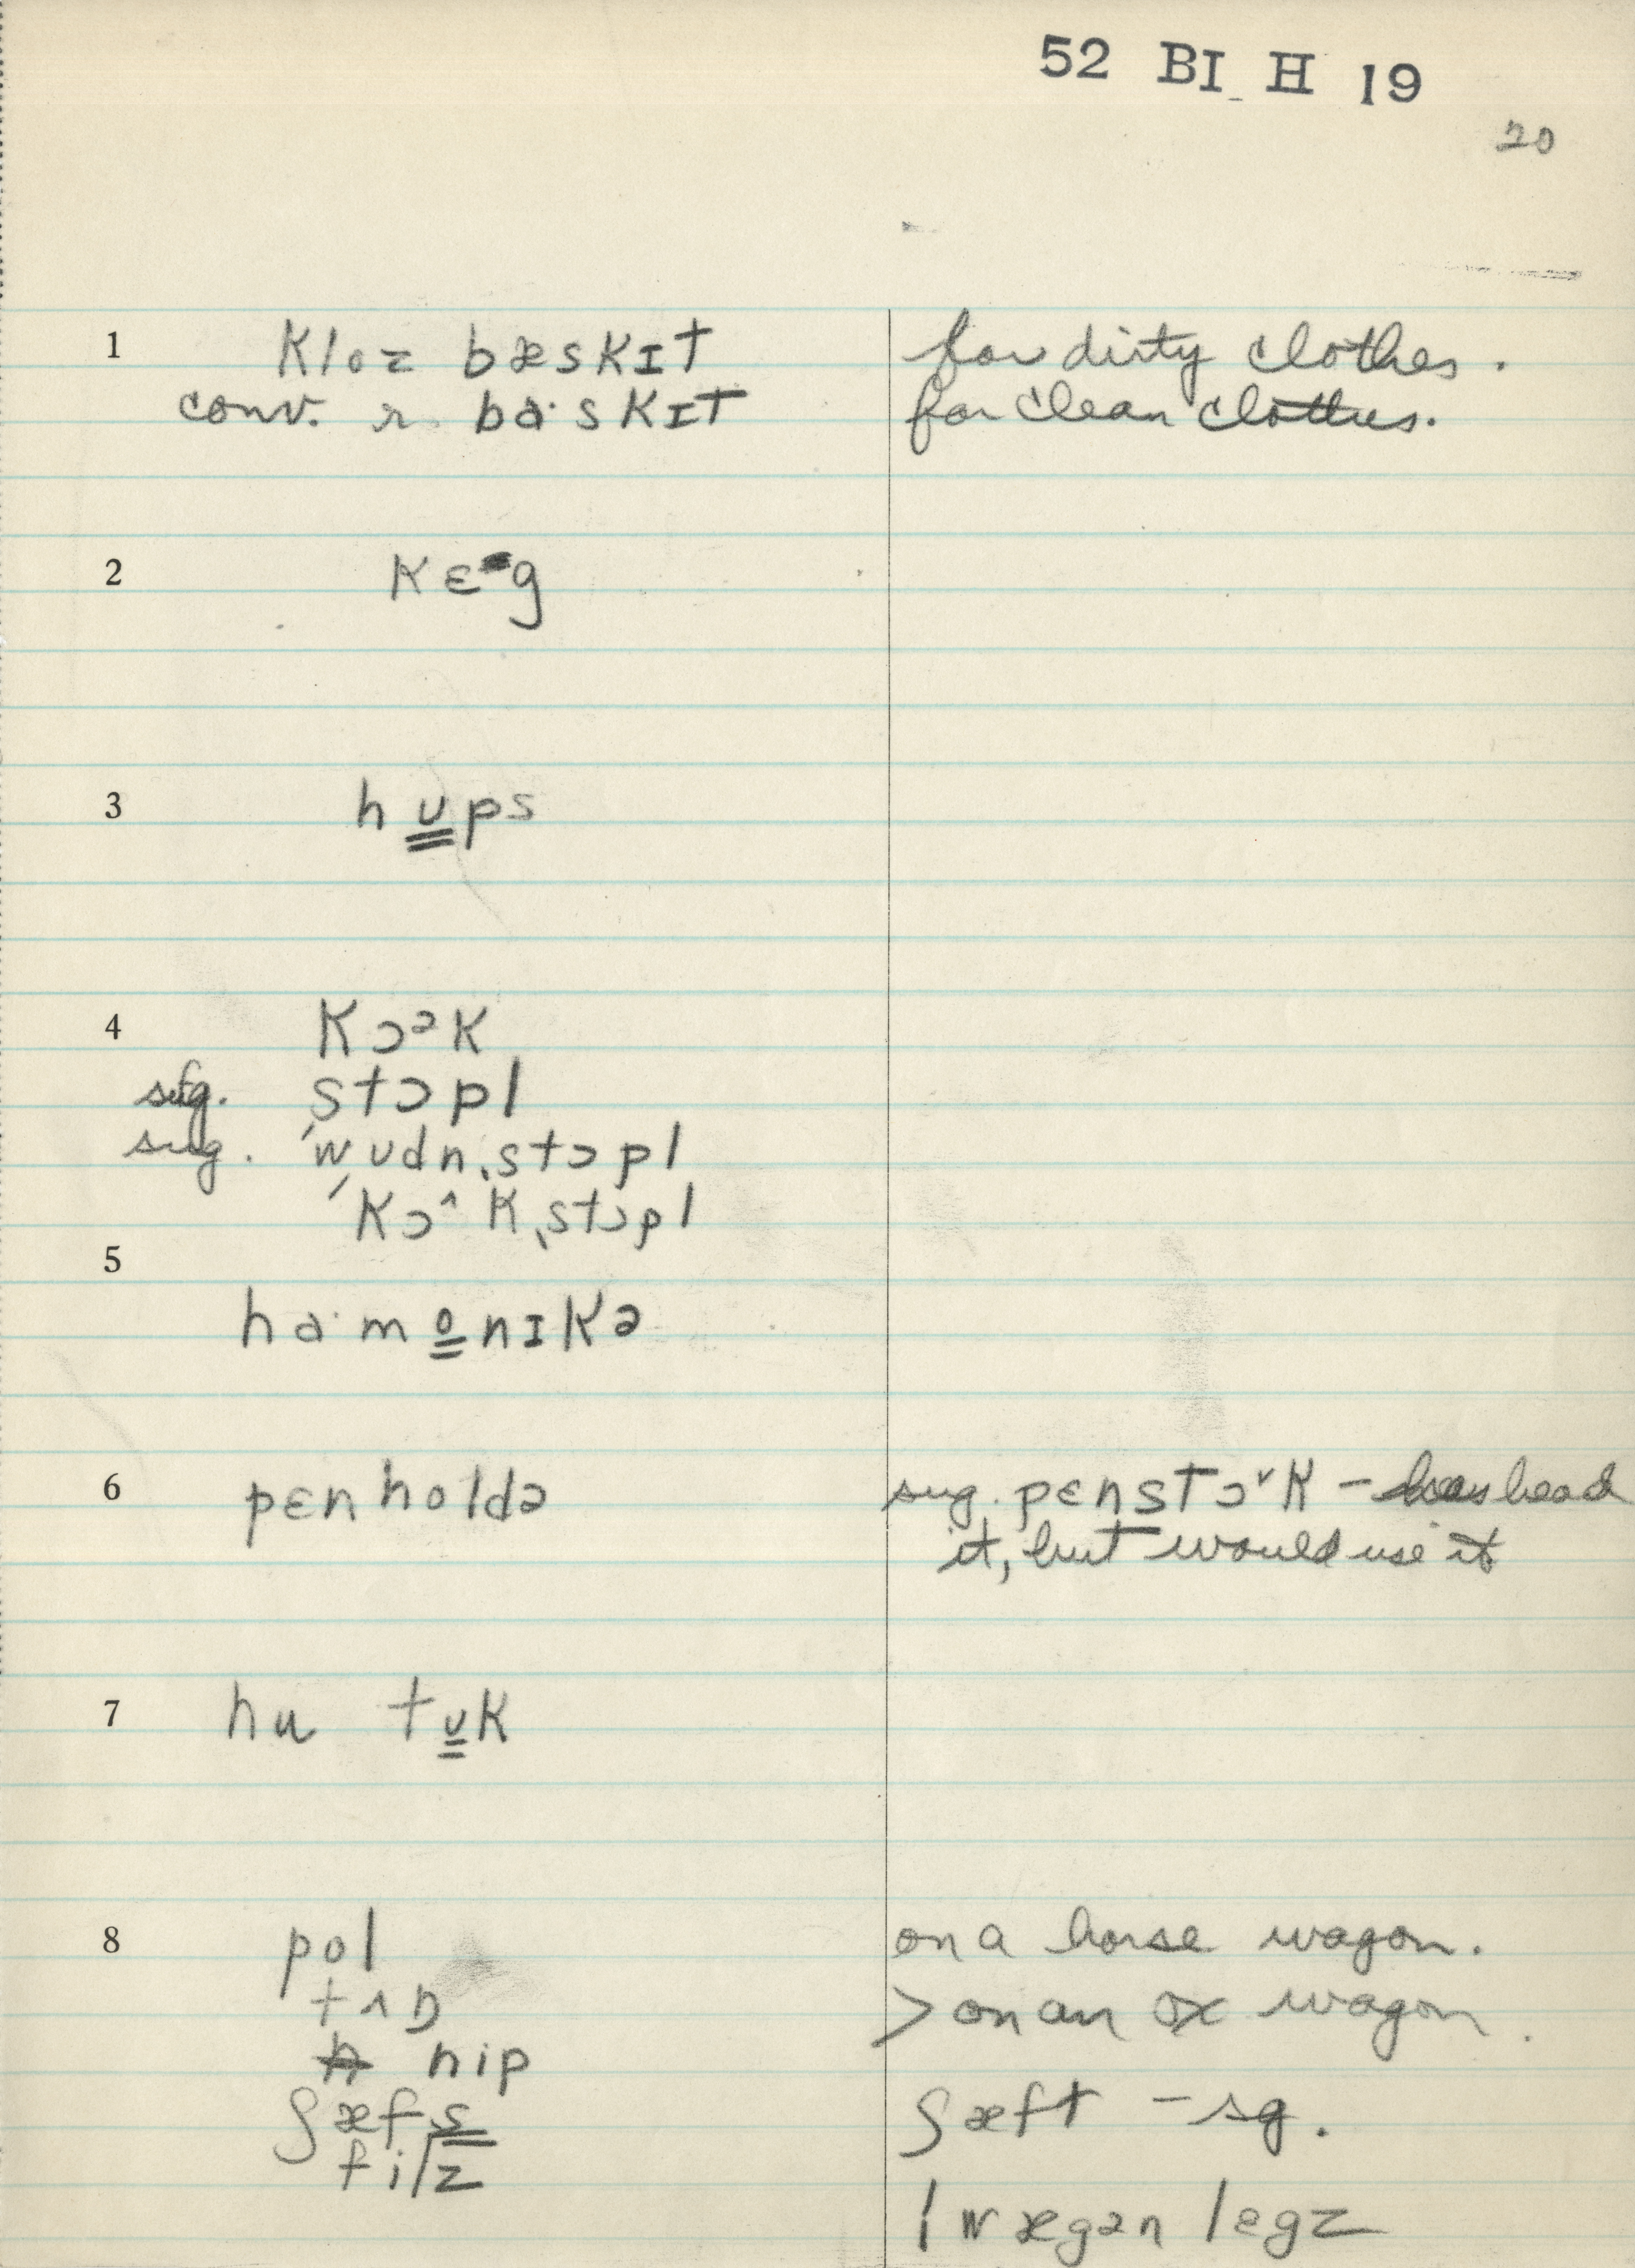 52 BI H 19
20
1 kloz bæskɪt for dirty clothes.
conv. r. ba·skɪt for clean clothes.
2 kɛg
3 hʊps
4 kɔᵊk
sug. stɔpl
sug. ˈwʊdn ˌstɔpl
ˈkɔ^k ˌstɔpl
5
ha·monɪkə
6 pɛnholdə sug. pɛnstɔ˅k – has head
it, but would use it
7 hu tʊk
8 pol on a horse wagon.
tʌŋ > on an ox wagon.
nip
ʃæfs ʃæft – sg.
filz
! wægən legz